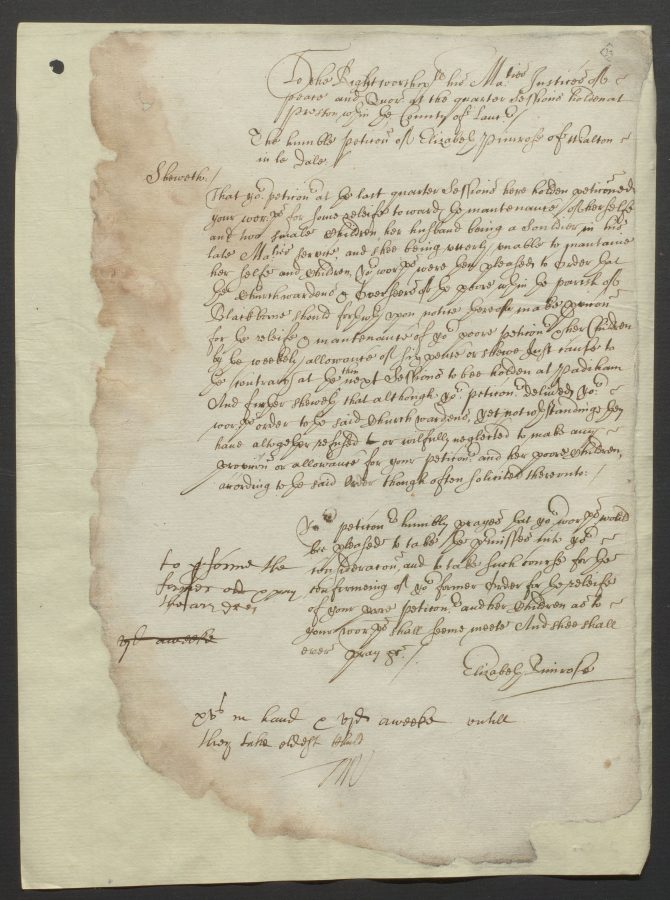 To the Right worshipll his Maties Justices of
peace and Quor: at the quarter Sessions holden at
Preston within the County of Lancr
The humble peticon of Elizabeth Pimrose of Walton
in le dale.
Sheweth./
That yor peticonr at the last quarter Sessions here holden peticoned
your worps for some releife toward the mantenance of her selfe
and two smale Children her husband being a Souldier in his
late Maties service and shee being utterly unable to mantaine
her selfe and Children, Yor worps were then pleased to Order that
the Churchwardens & Overseers of the poore within the parish of
Blackborne should forthwith upon notice thereof make provicon
for the releife & mantenance of yor poore peticonr & her Children
by the weekely allowance of six pence or shewe Just cause to
the contrary at the then next Sessions to bee holden at Padiham
And further sheweth that although yor peticonr delivered yor
worps order to the said Churchwardens, yet notwithstandinge they
have altogether refused or wilfully neglected to make any
provicon or allowance for your peticonr and her poore Children,
according to the said Order though often solicited thereunto:/
Yor peticonr humbly prayes that yor worps would
bee pleased to take the premisses into yor
consideracon, and to take such course for the
confirmeing of yor former Order for the releife
of your poore peticonr and her Children as to
your worps shall seeme meete And shee shall
ever pray &c./
Elizabeth Pimrose
to pforme the
former ordr
vjd a weeke
xvs in hand & vjd a weeke untill
they take oldest Child